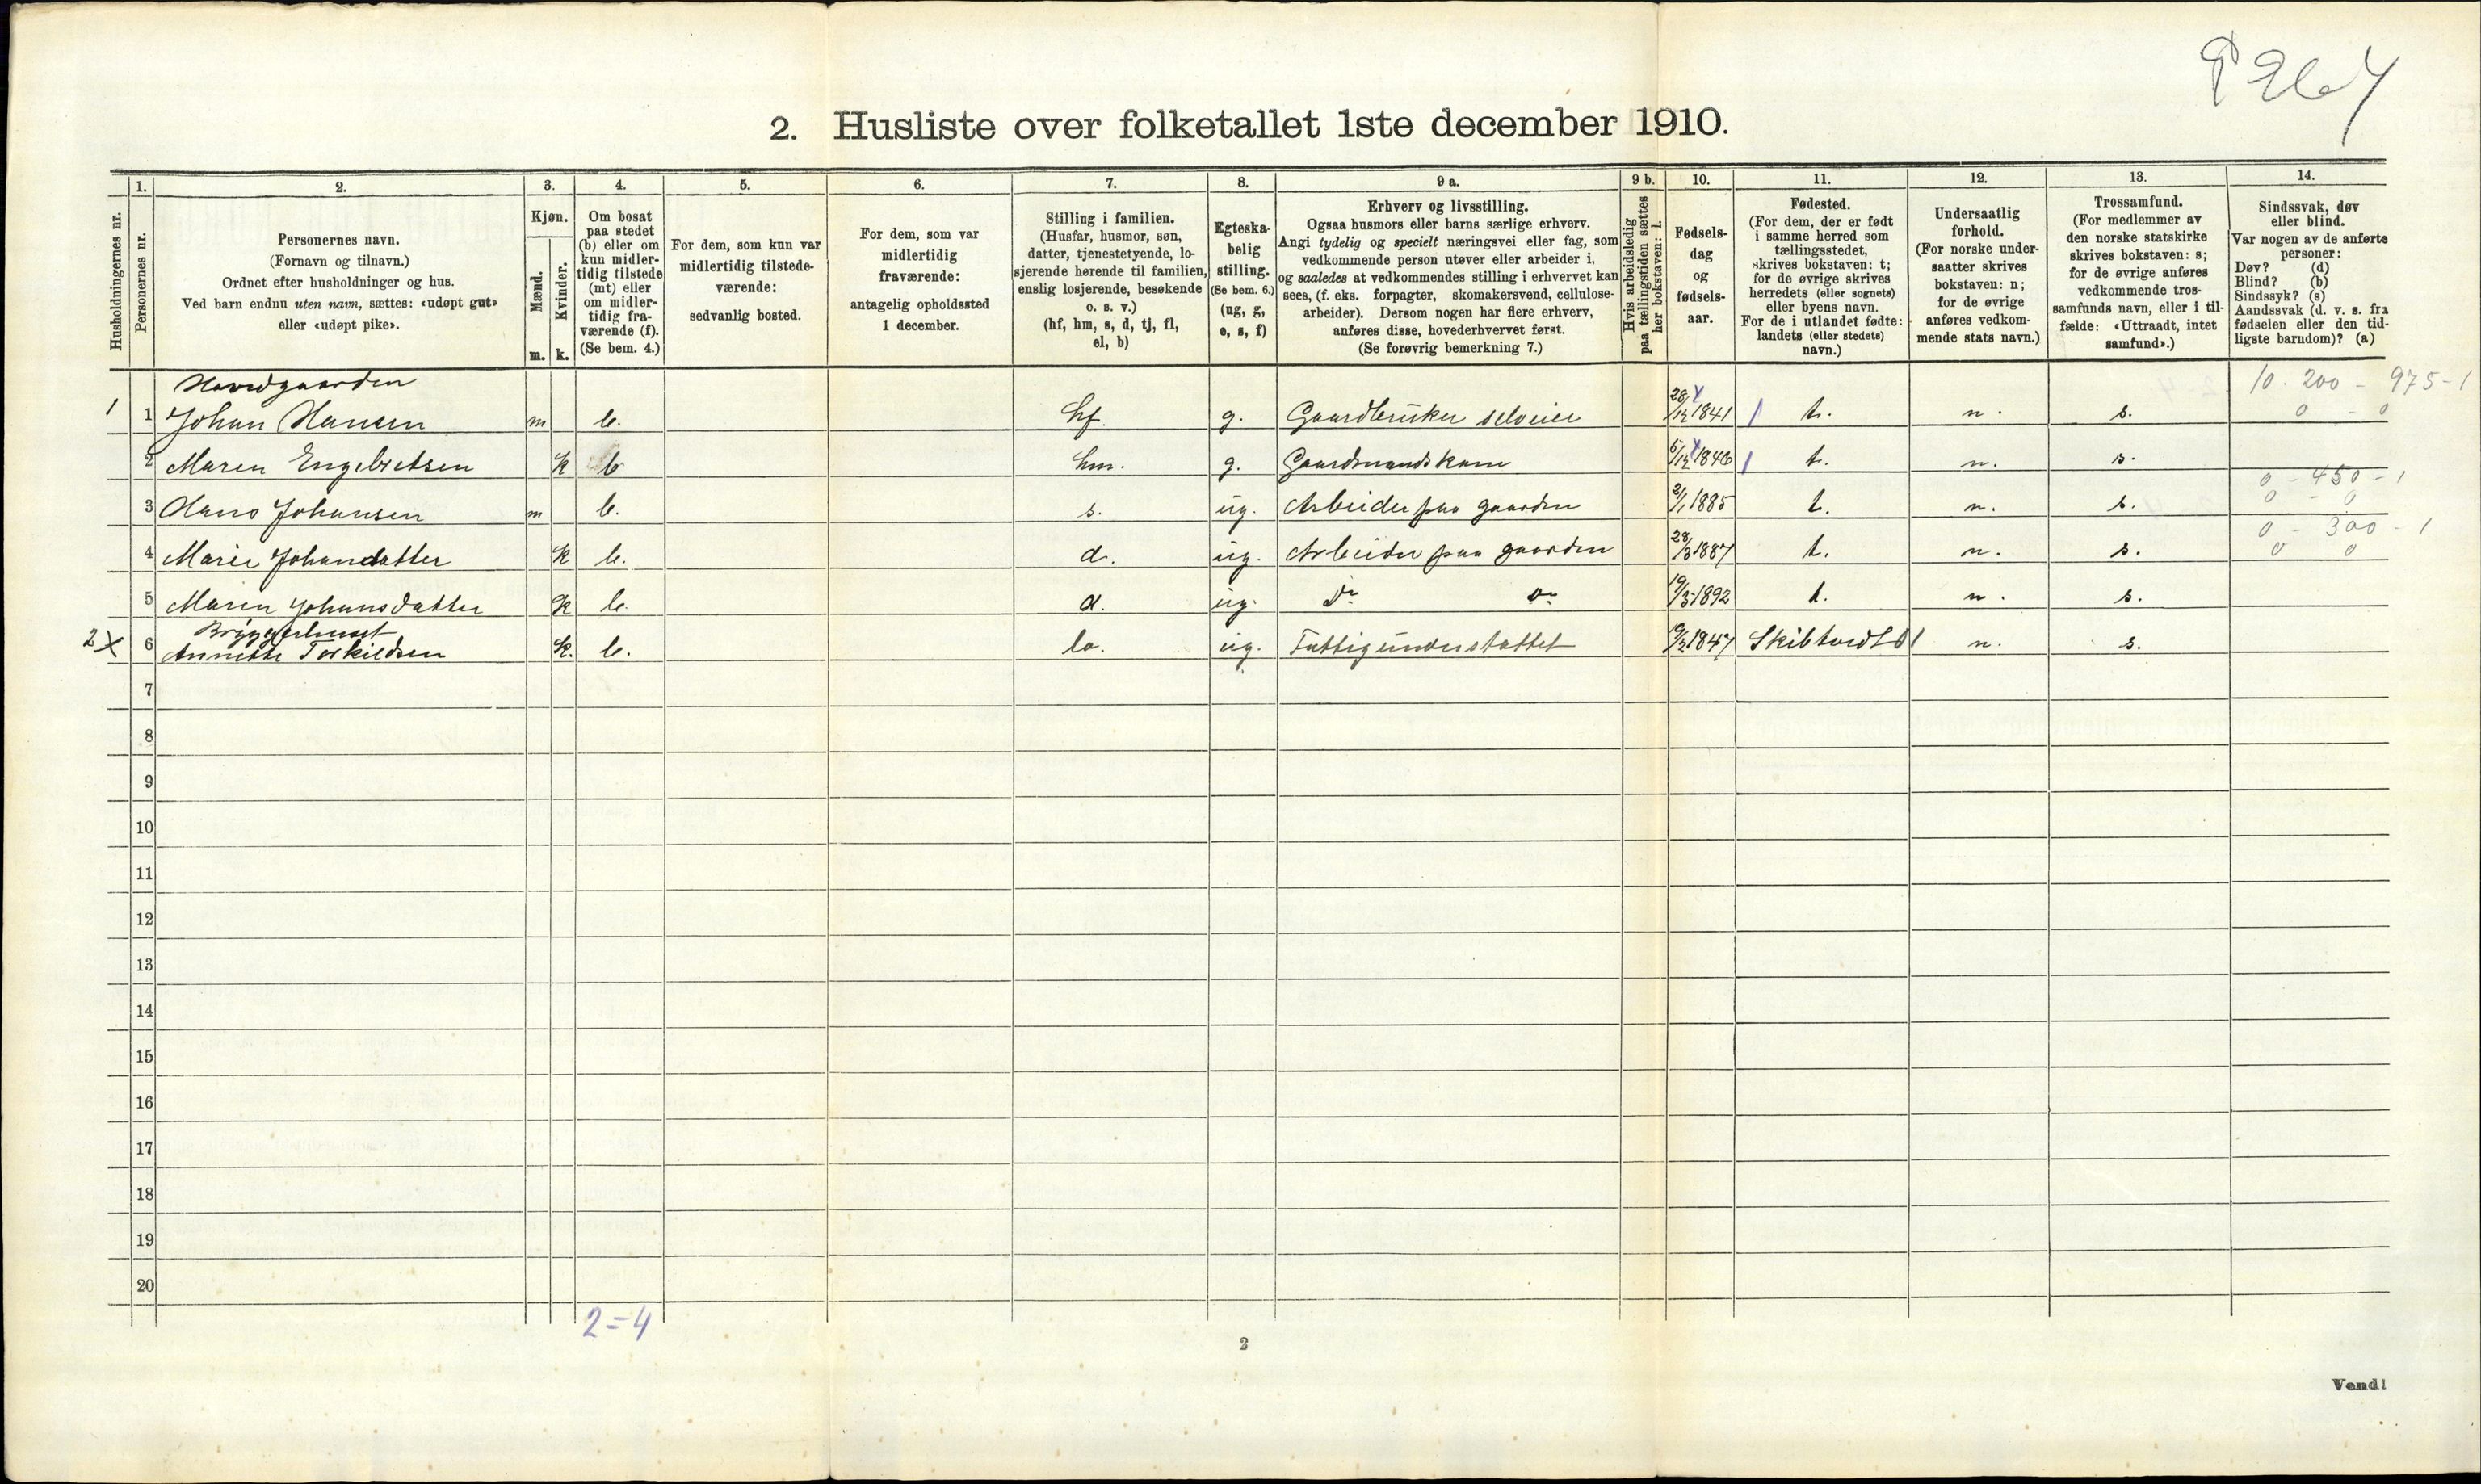 2. Husliste over folketallet 1ste december 1910.
Husholdningernes nr.
1.
Personernes nr.
2.
Personernes navn.
(Fornavn og tilnavn.)
Ordnet efter husholdninger og hus.
Ved barn endnu uten navn, sættes: «udøpt gut»
eller «udøpt pike».
3.
Kjøn.
Mænd.
Kvinder.
m. k.
4.
Om bosat
paa stedet
(b) eller om
kun midler-
tidig tilstede
(mt) eller
om midler-
tidig fra-
værende (f).
(Se bem. 4.)
5.
For dem, som kun var
midlertidig tilstede-
værende:
sedvanlig bosted.
6.
For dem, som var
midlertidig
fraværende:
antagelig opholdssted
1 december.
7.
Stilling i familien.
(Husfar, husmor, søn,
datter, tjenestetyende, lo-
sjerende hørende til familien,
enslig losjerende, besøkende
o. s. v.)
(hf, hm, s, d, tj, fl,
el, b)
8.
Egteska-
belig
stilling.
(Se bem. 6.)
(ug, g,
e, s, f)
9 a.
Erhverv og livsstilling.
Ogsaa husmors eller barns særlige erhverv.
Angi tydelig og specielt næringsvei eller fag, som
vedkommende person utøver eller arbeider i,
og saaledes at vedkommendes stilling i erhvervet kan
sees, (f. eks. forpagter, skomakersvend, cellulose-
arbeider). Dersom nogen har flere erhverv,
anføres disse, hovederhvervet først.
(Se forøvrig bemerkning 7.)
9 b.
Hvis arbeidsledig
paa tællingstiden sættes
her bokstaven: l.
10.
Fødsels-
dag
og
fødsels-
aar.
11.
Fødested.
(For dem, der er født
i samme herred som
tællingsstedet,
skrives bokstaven: t;
for de øvrige skrives
herredets (eller sognets)
eller byens navn.
For de i utlandet fødte:
landets (eller stedets)
navn.)
12.
Undersaatlig
forhold.
(For norske under-
saatter skrives
bokstaven: n;
for de øvrige
anføres vedkom-
mende stats navn.)
13.
Trossamfund.
(For medlemmer av
den norske statskirke
skrives bokstaven: s;
for de øvrige anføres
vedkommende tros-
samfunds navn, eller i til-
fælde: «Uttraadt, intet
samfund».)
14.
Sindssvak, døv
eller blind.
Var nogen av de anførte
personer:
Døv? (d)
Blind? (b)
Sindssyk? (s)
Aandssvak (d. v. s. fra
fødselen eller den tid-
ligste barndom)? (a)
Hovedgaarden
10. 200 - 975 - 1
1 1 Johan Hansen m b. hf. g. Gaardbruker selveier 28/12 1841 t. n. s. 0 - 0
2 Maren Engebretsen k b hm. g. Gaardmandskone 5/12 1840 t. n. s.
0 - 450 - 1
3 Hans Johansen m b. s. ug. Arbeider paa gaarden 2/1 1885 t. n. s. 0 - 0
0 - 300 - 1
4 Marie Johansdatter k b. d. ug. Arbeider paa gaarden 28/3 1887 t. n. s. 0 0
5 Maren Johansdatter k b. d. ug. Do Do 19/3 1892 t. n. s.
Bryggerhuset
2 X 6 Annette Torkildsen k. b. lo. ug. Fattigunderstøttet 1847 n. s.
7
8
9
10
11
12
13
14
15
16
17
18
19
20
2 = 4
2
Vend!